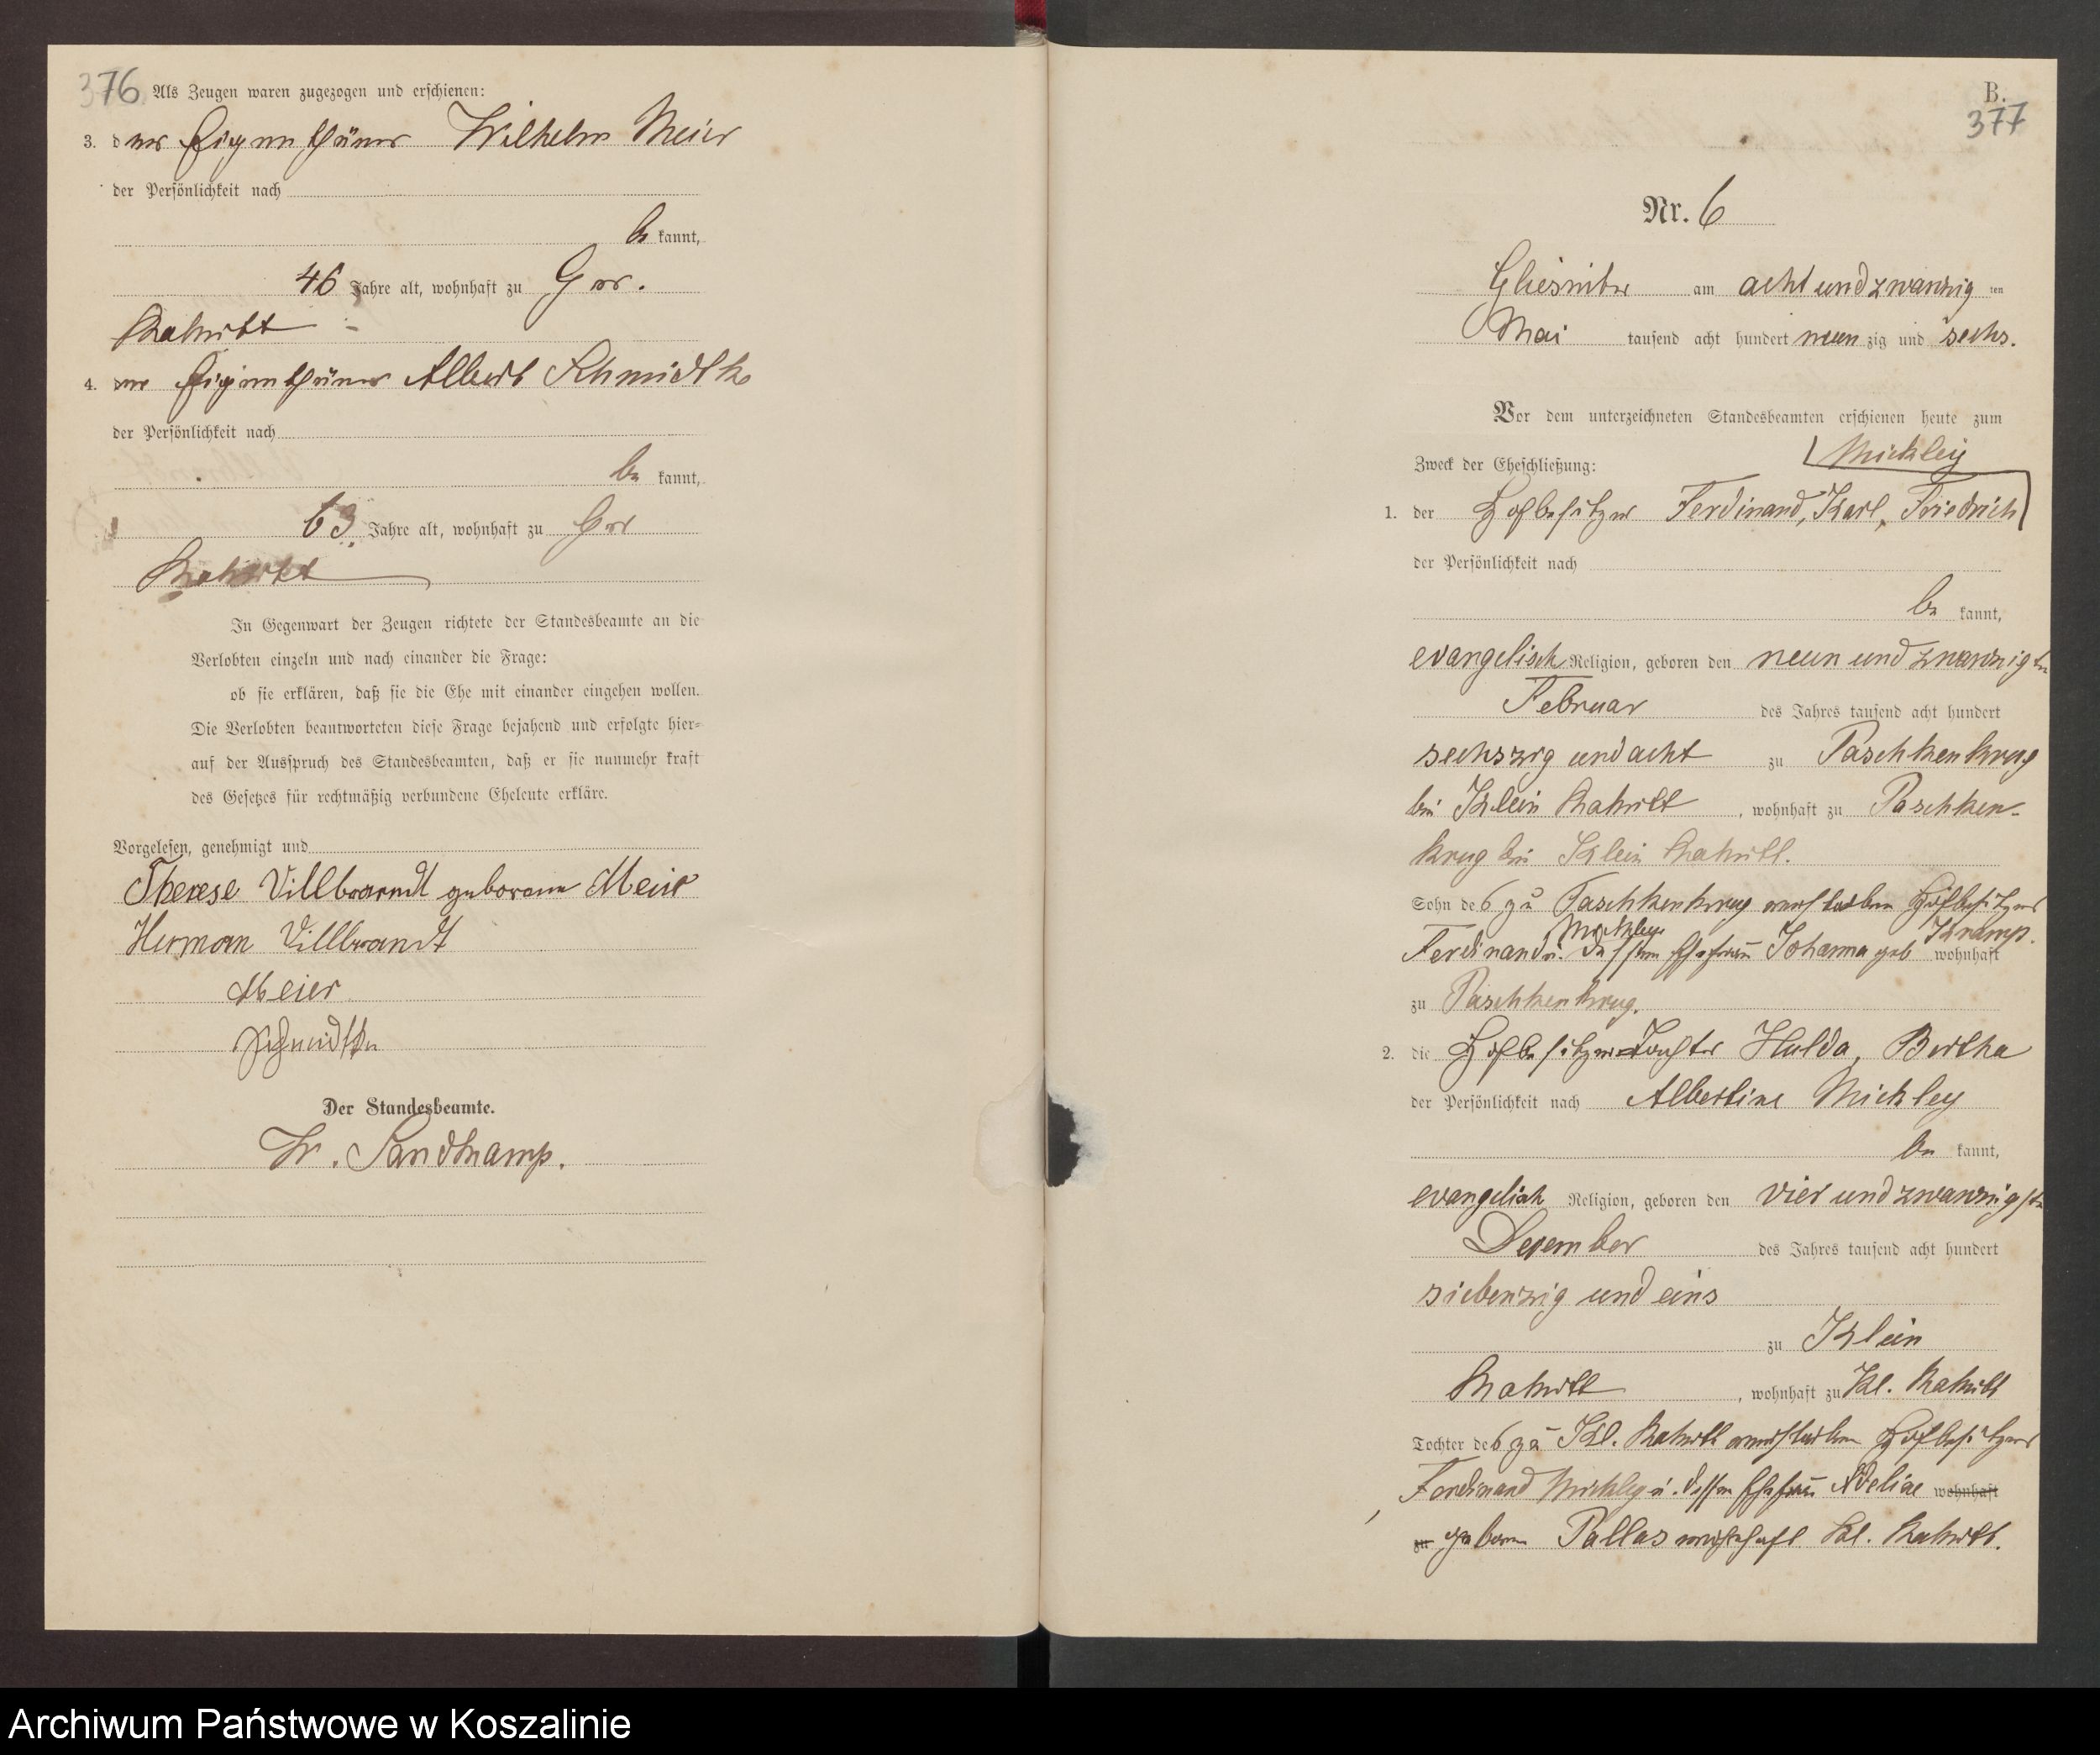 376 Als Zeugen waren zugezogen und erschienen:
3. der Eigenthümer Wilhelm Meier
der Persönlichkeit nach
be kannt,
46 Jahre alt, wohnhaft zu Gr.
Rakitt
4. der Eigenthümer Albert Schmidtke
der Persönlichkeit nach
be kannt,
63 Jahre alt, wohnhaft zu Gr
Rakitt
In Gegenwart der Zeugen richtete der Standesbeamte an die
Verlobten einzeln und nach einander die Frage:
ob sie erklären, daß sie die Ehe mit einander eingehen wollen.
Die Verlobten beantworteten diese Frage bejahend und erfolgte hier=
auf der Ausspruch des Standesbeamten, daß er sie nunmehr kraft
des Gesetzes für rechtmäßig verbundene Eheleute erkläre.
Vorgelesen, genehmigt und
Therese Villbrandt geborene Meier
Herman Villbrandt
Meier
Schmidtke
Der Standesbeamte.
Sandkamp.
B.
377
Nr. 6
Gliesnitz am acht und zwanzig ten
Mai tausend acht hundert neun zig und sechs.
Vor dem unterzeichneten Standesbeamten erschienen heute zum
Zweck der Eheschließung:
Mickley
1. der Hofbesitzer Ferdinand, Karl, Friedrich
der Persönlichkeit nach
be kannt,
evangelisch Religion, geboren den neun und zwanzigten
Februar des Jahres tausend acht hundert
sechszig und acht zu Paschkenkrug
bei Klein Rakitt, wohnhaft zu Paschken-
krug bei Klein Rakitt.
Sohn des zu Paschkenkrug verstorbenen Hofbesitzers
Ferdinand Mickley u. dessen Ehefrau Johanna geb Kramp. wohnhaft
zu Paschkenkrug.
2. die Hofbesitzer=Tochter Hulda, Bertha
der Persönlichkeit nach Albertine Mickley
be kannt,
evangelisch Religion, geboren den vier und zwanzigsten
Dezember des Jahres tausend acht hundert
siebenzig und eins
zu Klein
Rakitt, wohnhaft zu Kl. Rakitt
Tochter des zu Kl. Rakitt verstorbenen Hofbesitzers
Ferdinand Mickley u. dessen Ehefrau wohnhaft
zu geboren Pallas Kl. Rakitt.
Archiwum Państwowe w Koszalinie